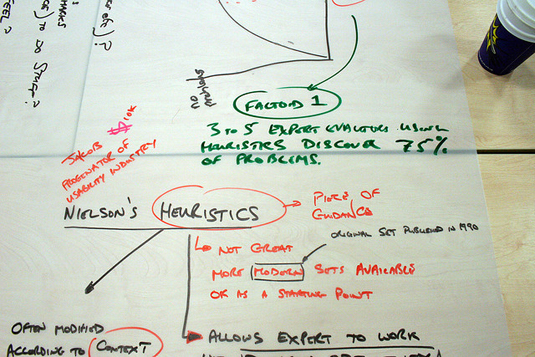 FACTOID 1
3 TO 5 EXPERT EVALUATORS USING
HEURISTICS DISCOVER 75%
OF PROBLEMS.
$10K
JAKOB
PROGENATOR OF
USABILITY INDUSTRY
NIELSON'S HEURISTICS
PIECE OF
GUIDANCE
ORIGINAL SET PUBLISHED IN 1990
NOT GREAT
MORE MODERN SETS AVAILABLE
OK AS A STARTING POINT
OFTEN MODIFIED
ACCORDING TO CONTEXT
ALLOWS EXPERT TO WORK